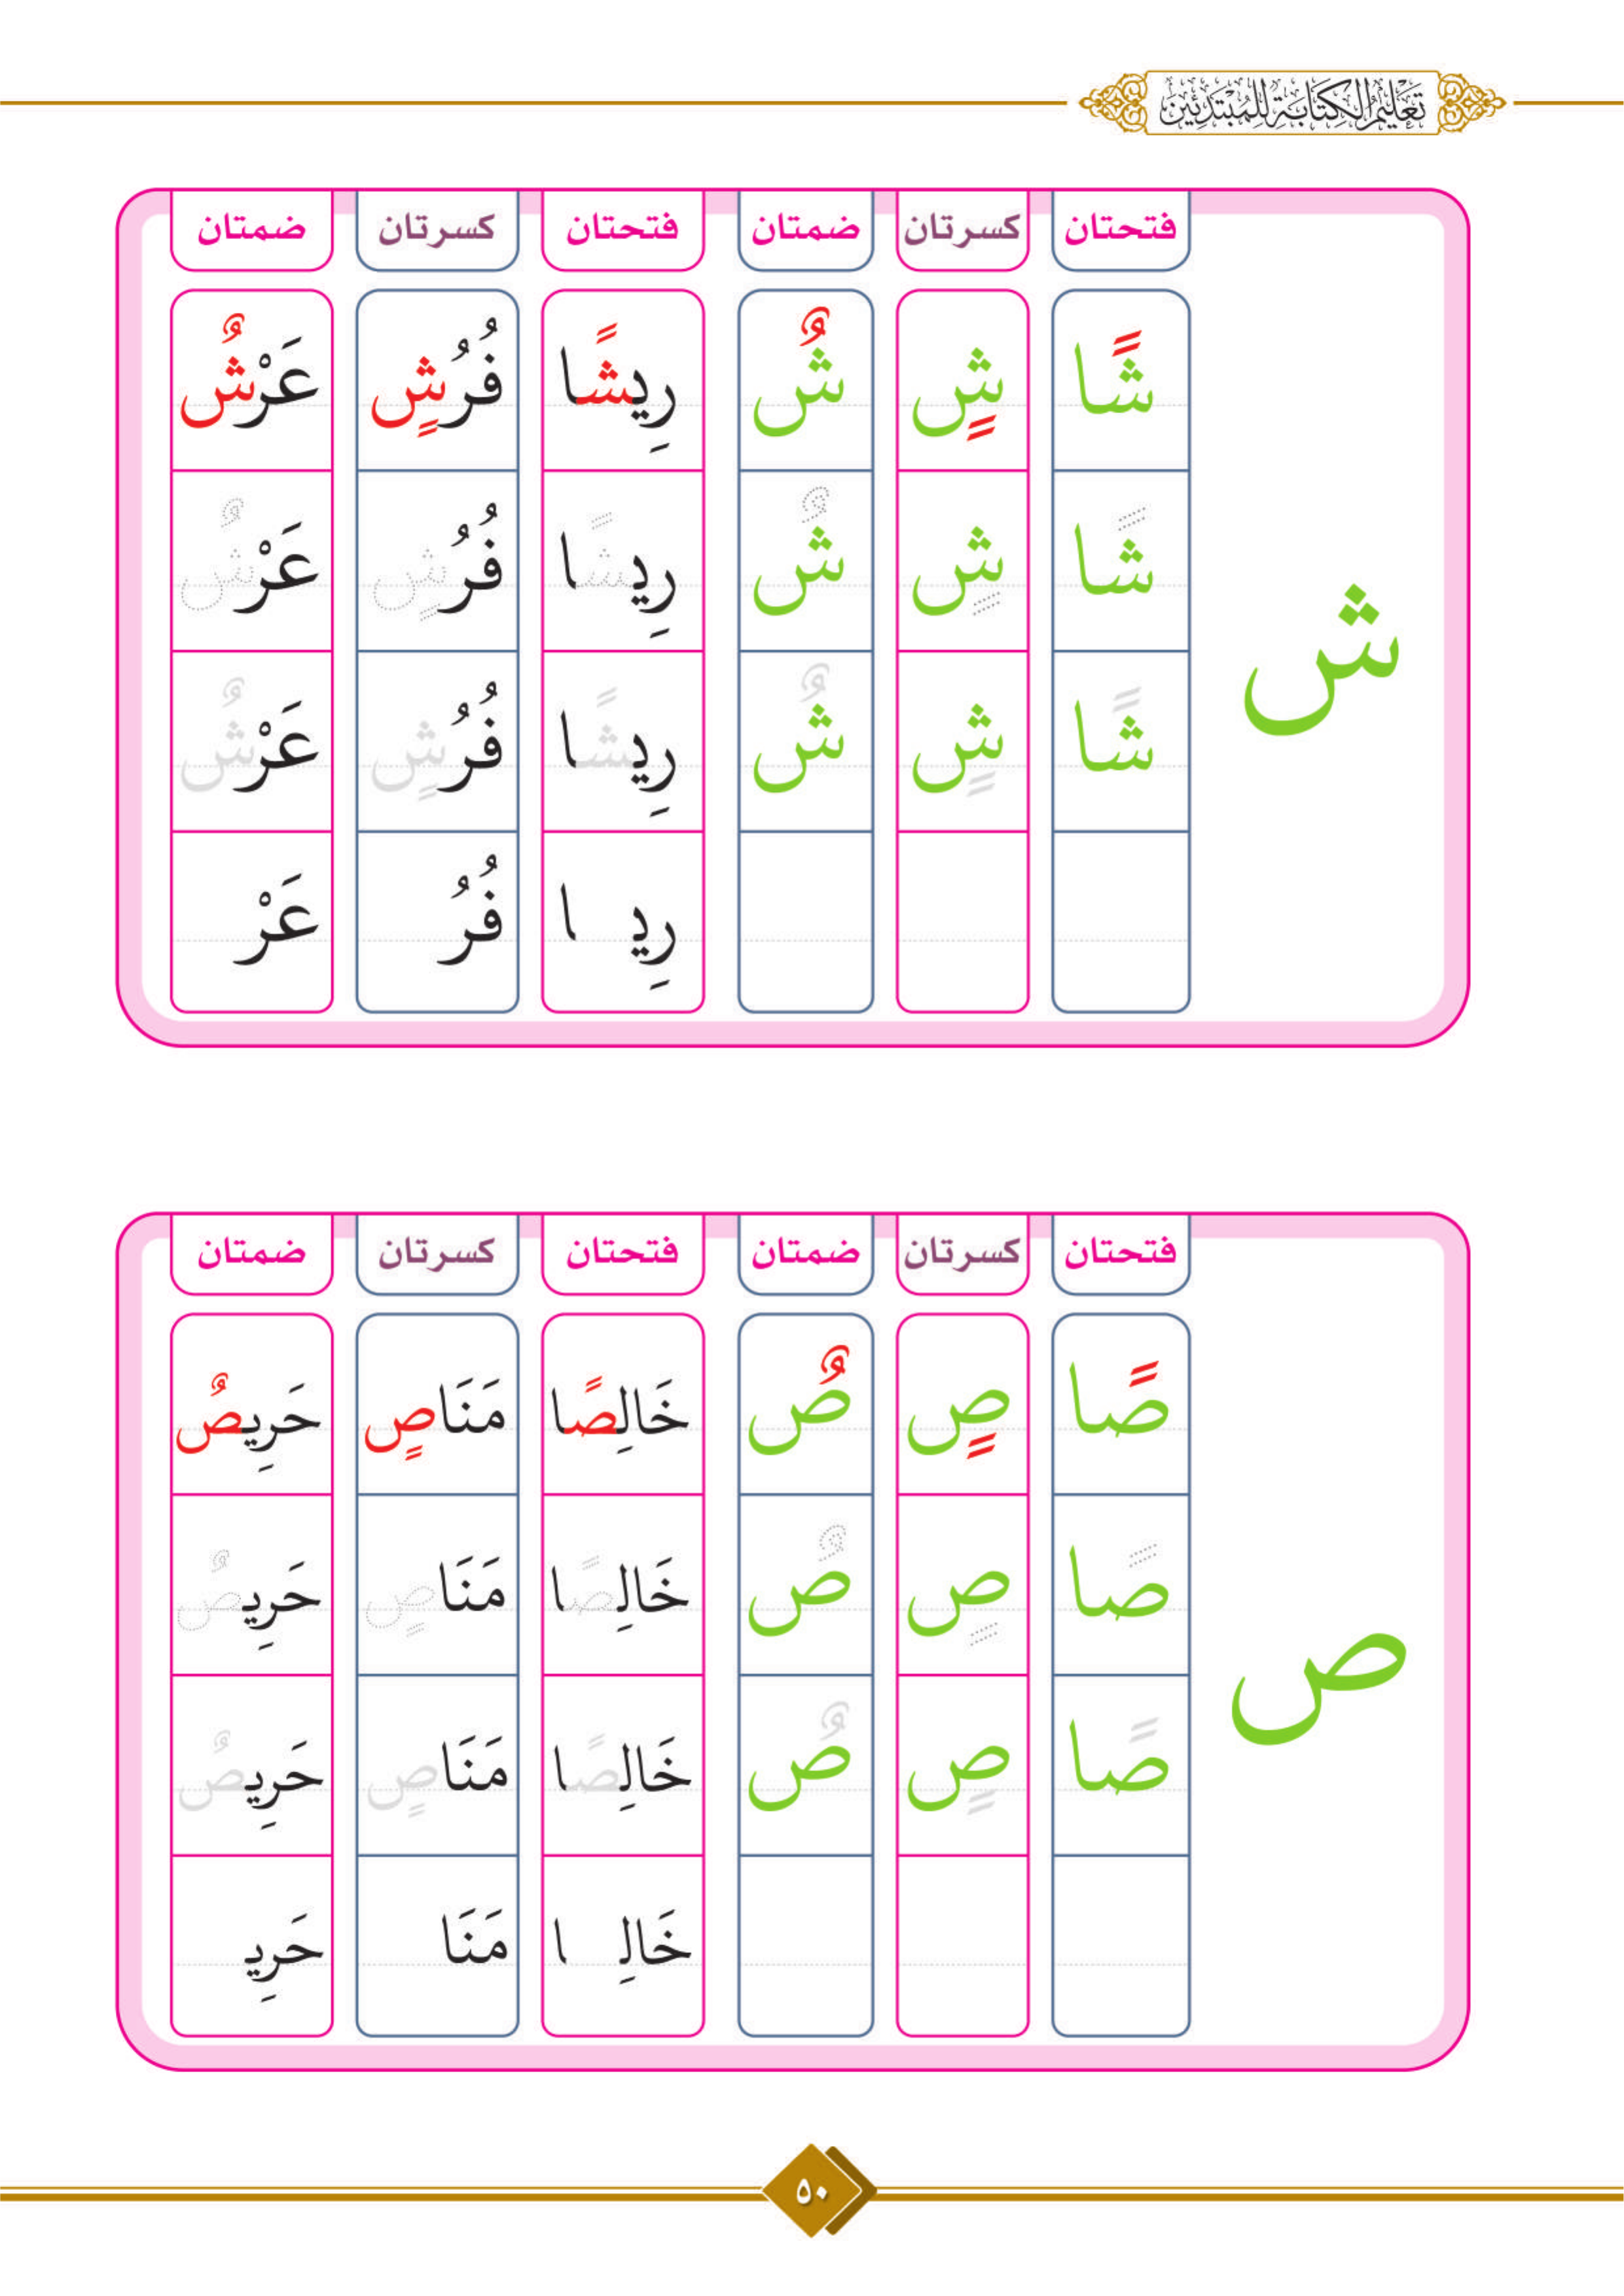 تَعْلِيمُ الْكِتَابَةِ لِلْمُبْتَدِئِينَ
فتحتان كسرتان ضمتان فتحتان كسرتان ضمتان
ش
شًا شٍ شٌ رِيشًا فُرُشٍ عَرْشٌ
شًا شٍ شٌ رِيشًا فُرُشٍ عَرْشٌ
شًا شٍ شٌ رِيشًا فُرُشٍ عَرْشٌ
رِيـ ـا فُرُ عَرْ
فتحتان كسرتان ضمتان فتحتان كسرتان ضمتان
ص
صًا صٍ صٌ خَالِصًا مَنَاصٍ حَرِيصٌ
صًا صٍ صٌ خَالِصًا مَنَاصٍ حَرِيصٌ
صًا صٍ صٌ خَالِصًا مَنَاصٍ حَرِيصٌ
خَالِـ ـا مَنَا حَرِيـ
٥٠